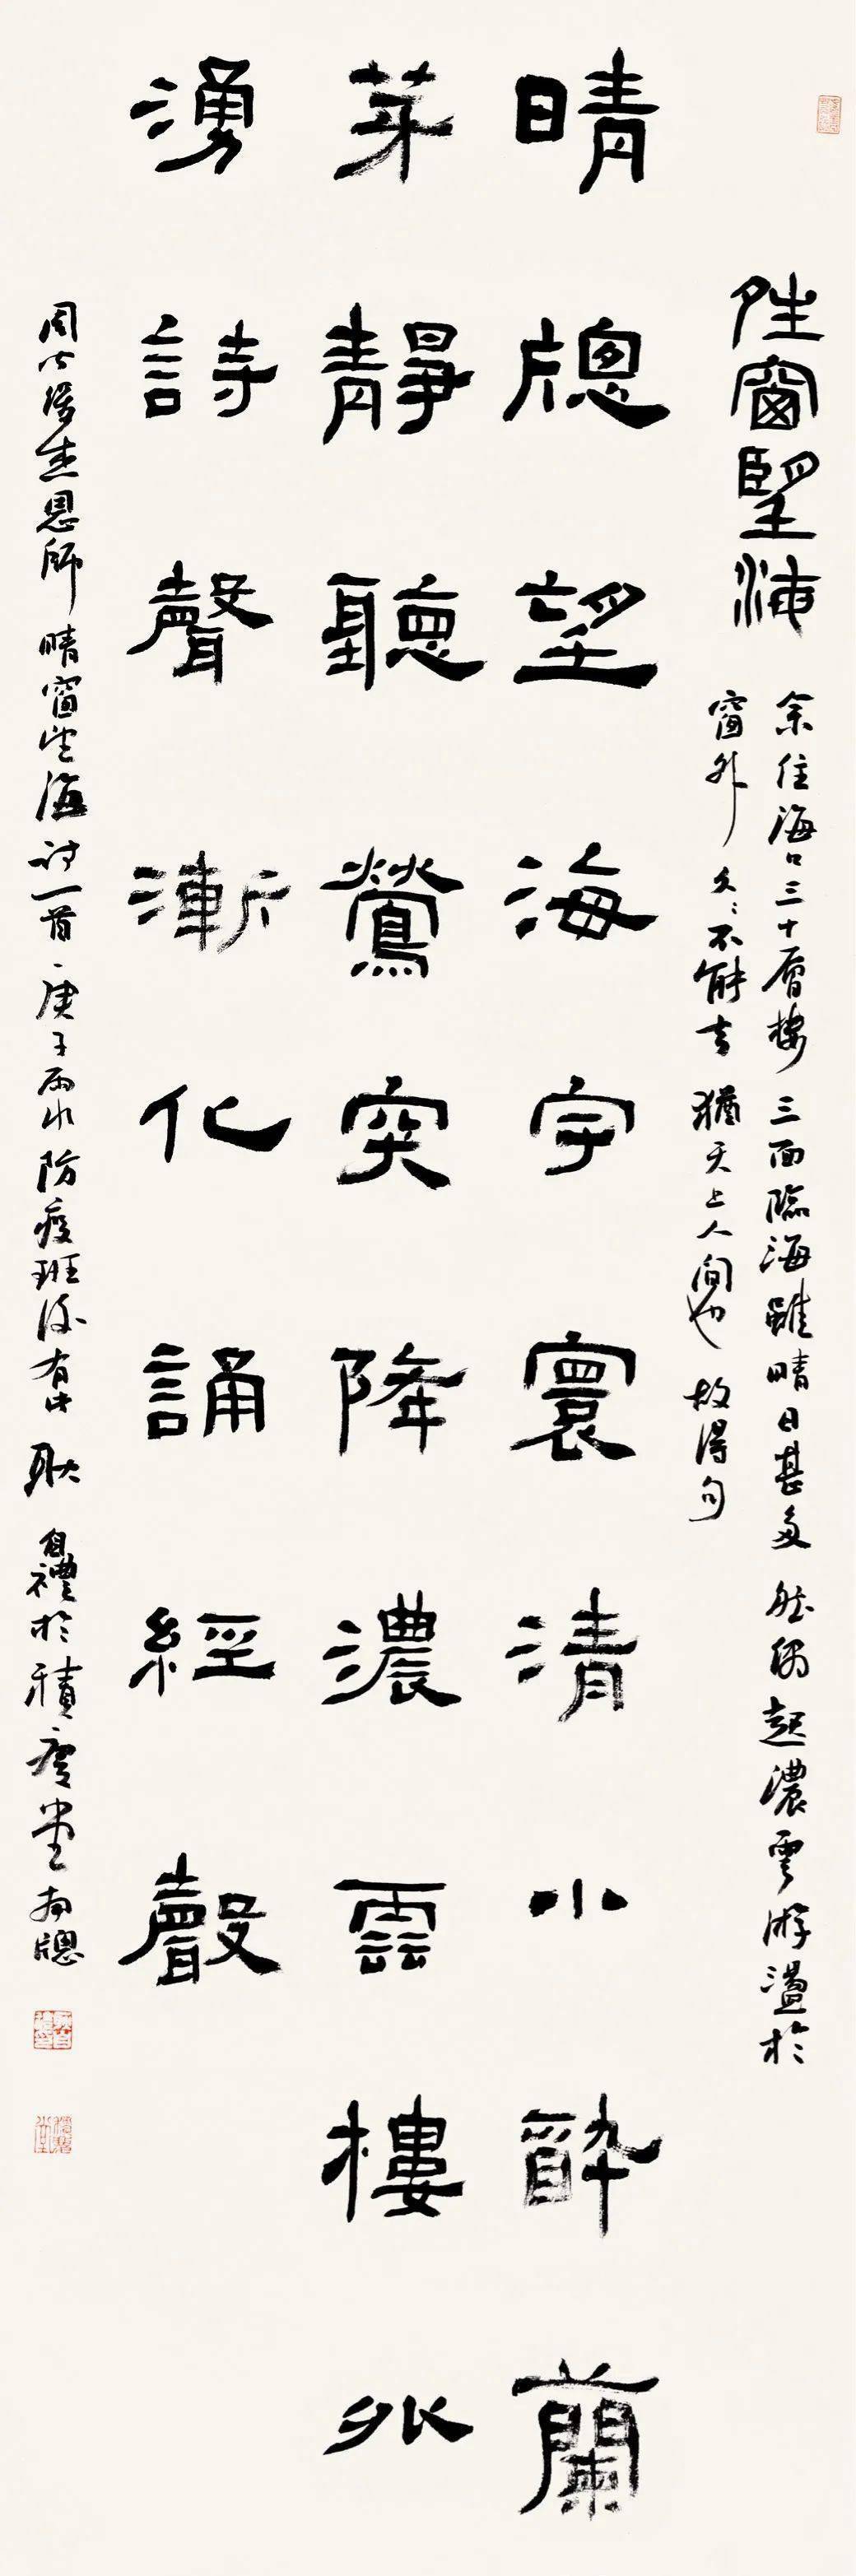 夝窗望海
余住海口三十層樓三面臨海雖晴日甚多然偶起濃雲游盪於
窗外久〻不能去猶天上人間也故得句
晴牕望海宇寰清小醉蘭
芽靜聽鶯突降濃雲樓外
湧詩聲漸化誦經聲
周公俊杰恩師晴窗望海詩一首庚子雨水防疫班後有耿自禮於積堂南牕